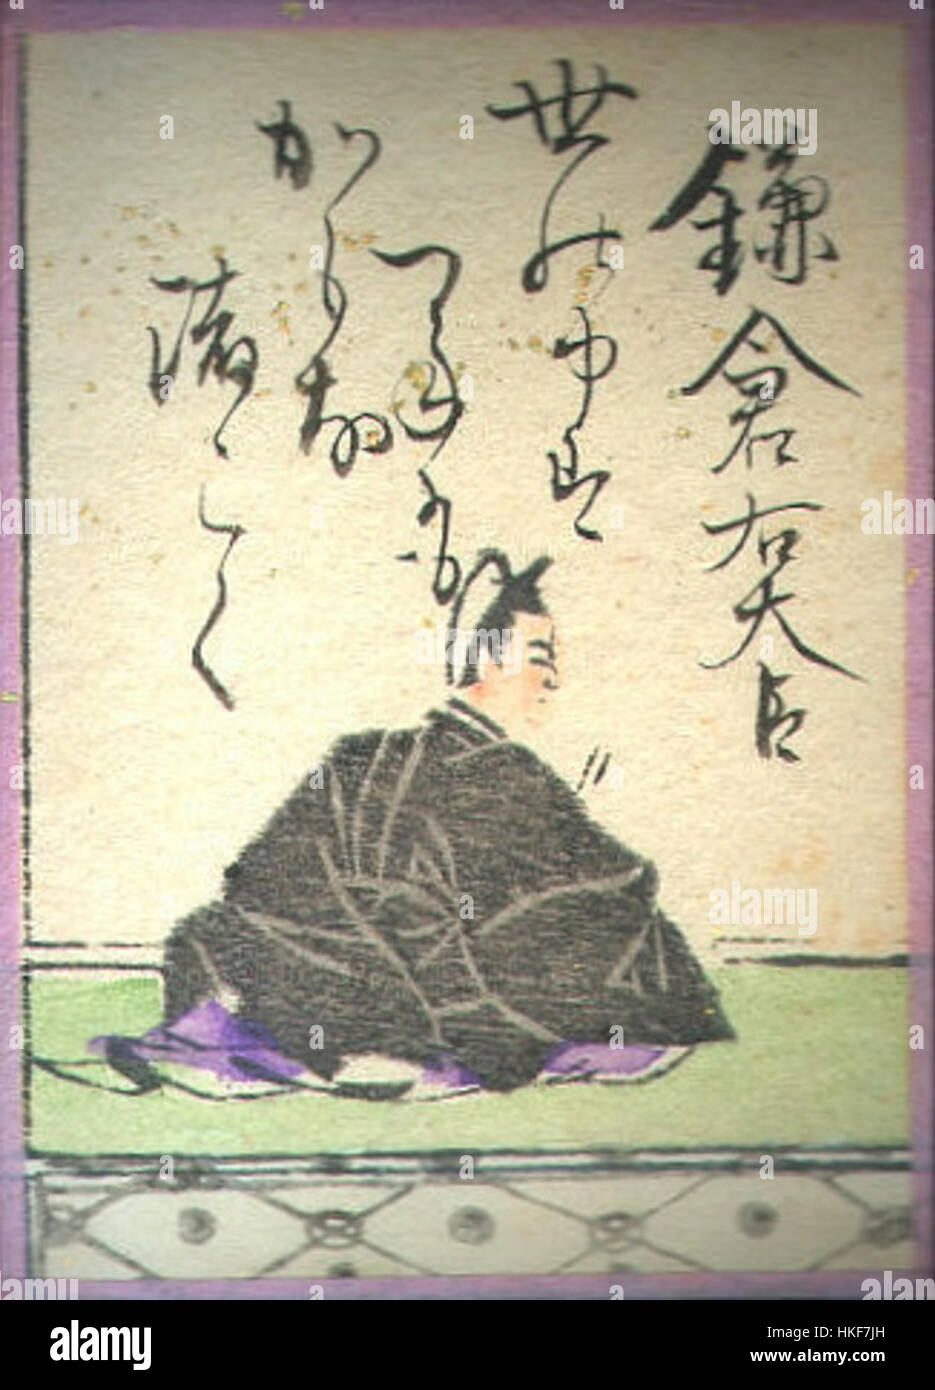 鎌倉右大臣
世の中は
つねにも
かもな
渚こく
alamy
Image ID: HKF7JH
www.alamy.com